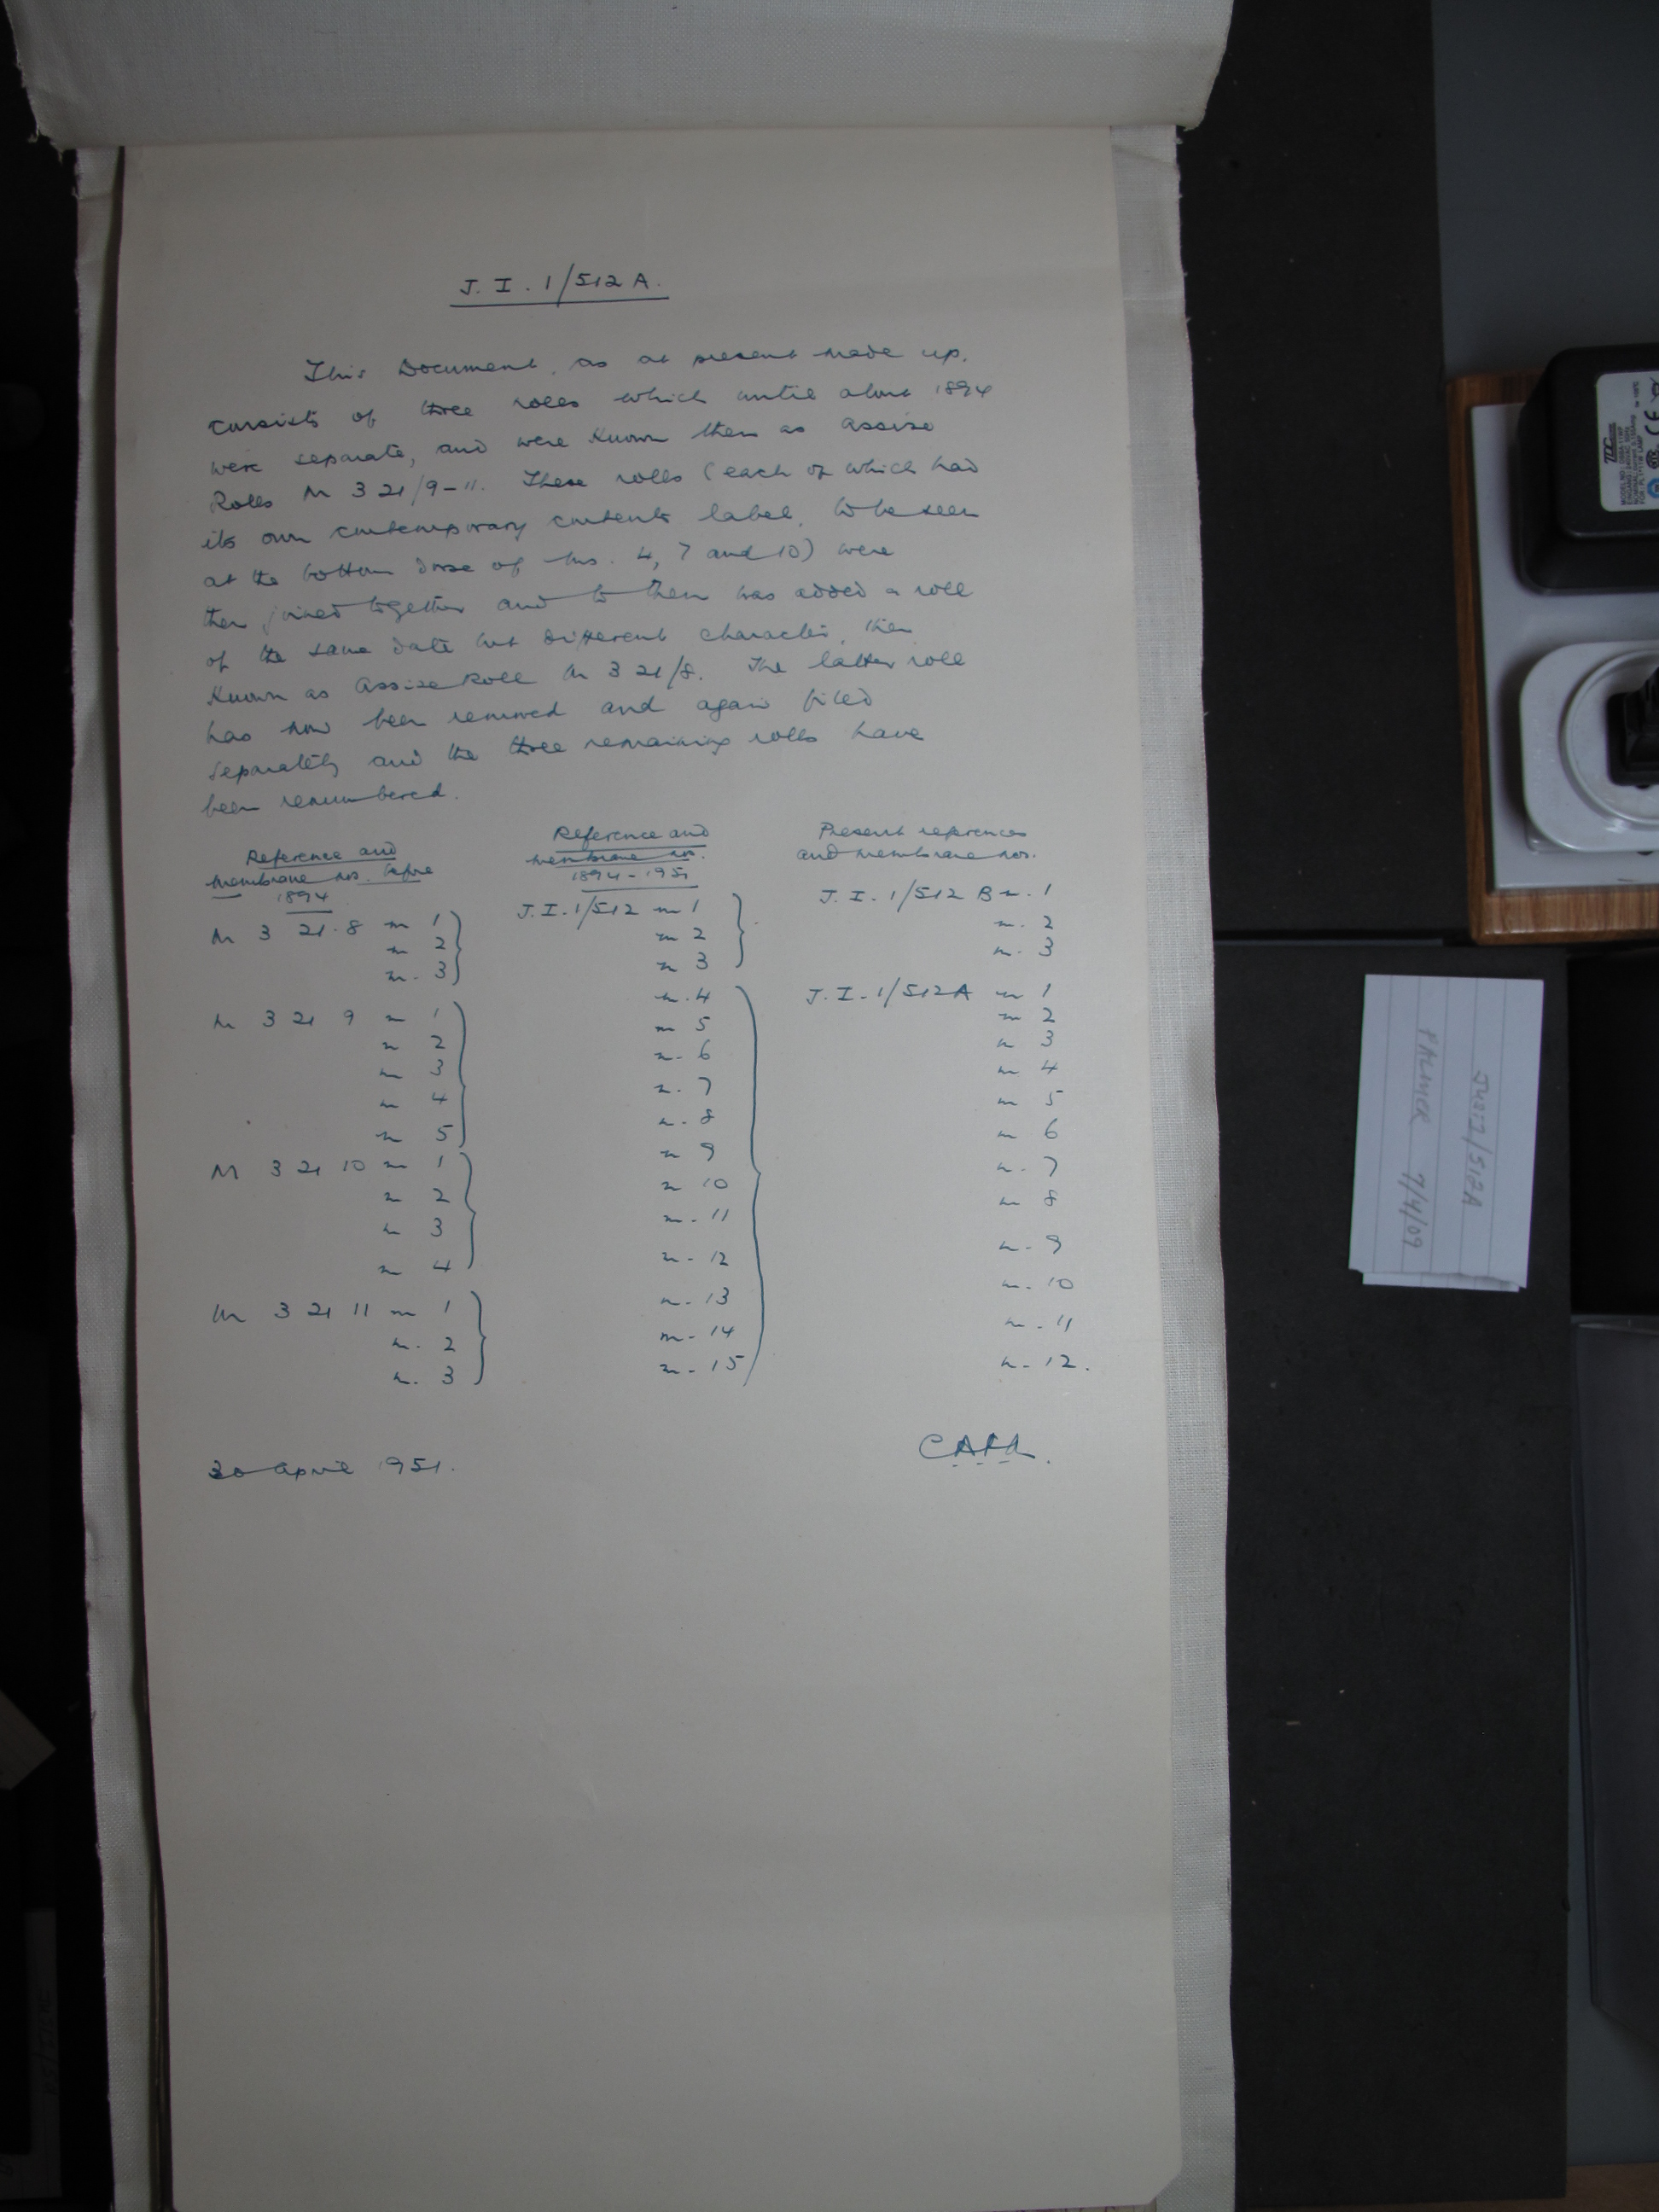 J. I. 1/512 A.
This Document, as at present made up,
consists of three rolls which until about 1894
were separate, and were known then as Assize
Rolls M 3 21/9-11. These rolls (each of which had
its own contemporary contents label, to be seen
at the bottom dorse of ms. 4, 7 and 10) were
then joined together and to them was added a roll
of the same date but different character, then
known as Assize Roll M 3 21/8. The latter roll
has now been removed and again filed
separately and the three remaining rolls have
been renumbered.
Reference and
membrane nos. before
1894
M 3 21.8 m 1
m 2
m. 3
M 3 21 9 m 1
m 2
m 3
m 4
m 5
M 3 21 10 m 1
m 2
m 3
m 4
M 3 21 11 m 1
m. 2
m. 3
Reference and
membrane nos.
1894-1951
J.I.1/512 m 1
m 2
m 3
m.4
m 5
m. 6
m. 7
m. 8
m 9
m 10
m. 11
m. 12
m. 13
m. 14
m. 15
Present references
and membrane nos.
J. I. 1/512 B m. 1
m. 2
m. 3
J. I. 1/512A m 1
m 2
m 3
m 4
m 5
m 6
m. 7
m 8
m. 9
m. 10
m. 11
m. 12.
30 April 1951.
JUST1/512A
PALMER 7/4/09